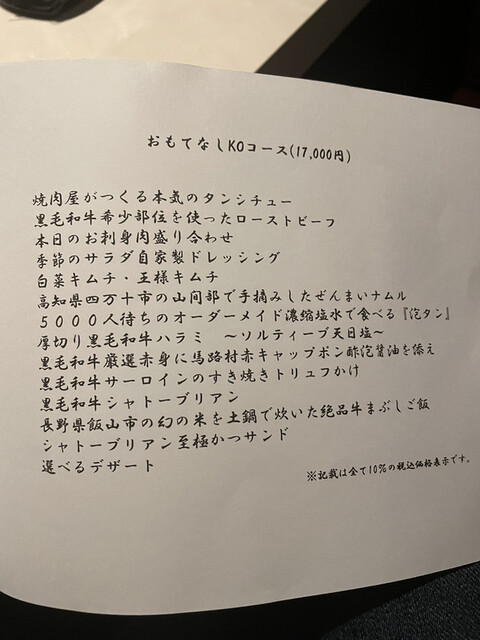 おもてなしKOコース(17,000円)
焼肉屋がつくる本気のタンシチュー
黒毛和牛希少部位を使ったローストビーフ
本日のお刺身肉盛り合わせ
季節のサラダ自家製ドレッシング
白菜キムチ・王様キムチ
高知県四万十市の山間部で手摘みしたぜんまいナムル
5000人待ちのオーダーメイド濃縮塩水で食べる『泡タン』
厚切り黒毛和牛ハラミ ～ソルティーブ天日塩～
黒毛和牛厳選赤身に馬路村赤キャップポン酢泡醤油を添え
黒毛和牛サーロインのすき焼きトリュフかけ
黒毛和牛シャトーブリアン
長野県飯山市の幻の米を土鍋で炊いた絶品牛まぶしご飯
シャトーブリアン至極かつサンド
選べるデザート
※記載は全て10%の税込価格表示です。